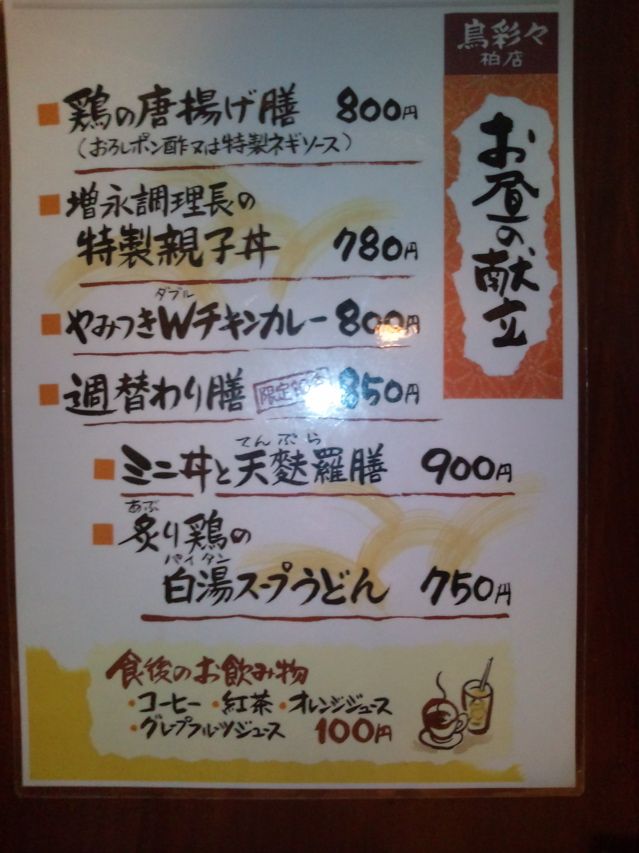 鳥彩々
柏店
お昼の献立
鶏の唐揚げ膳 800円
(おろしポン酢又は特製ネギソース)
増永調理長の
特製親子丼 780円
ダブル
やみつきWチキンカレー 800円
週替わり膳 限定 850円
てんぷら
ミニ丼と天麩羅膳 900円
あぶ
炙り鶏の
パイタン
白湯スープうどん 750円
食後のお飲み物
・コーヒー ・紅茶 ・オレンジジュース
・グレープフルーツジュース 100円